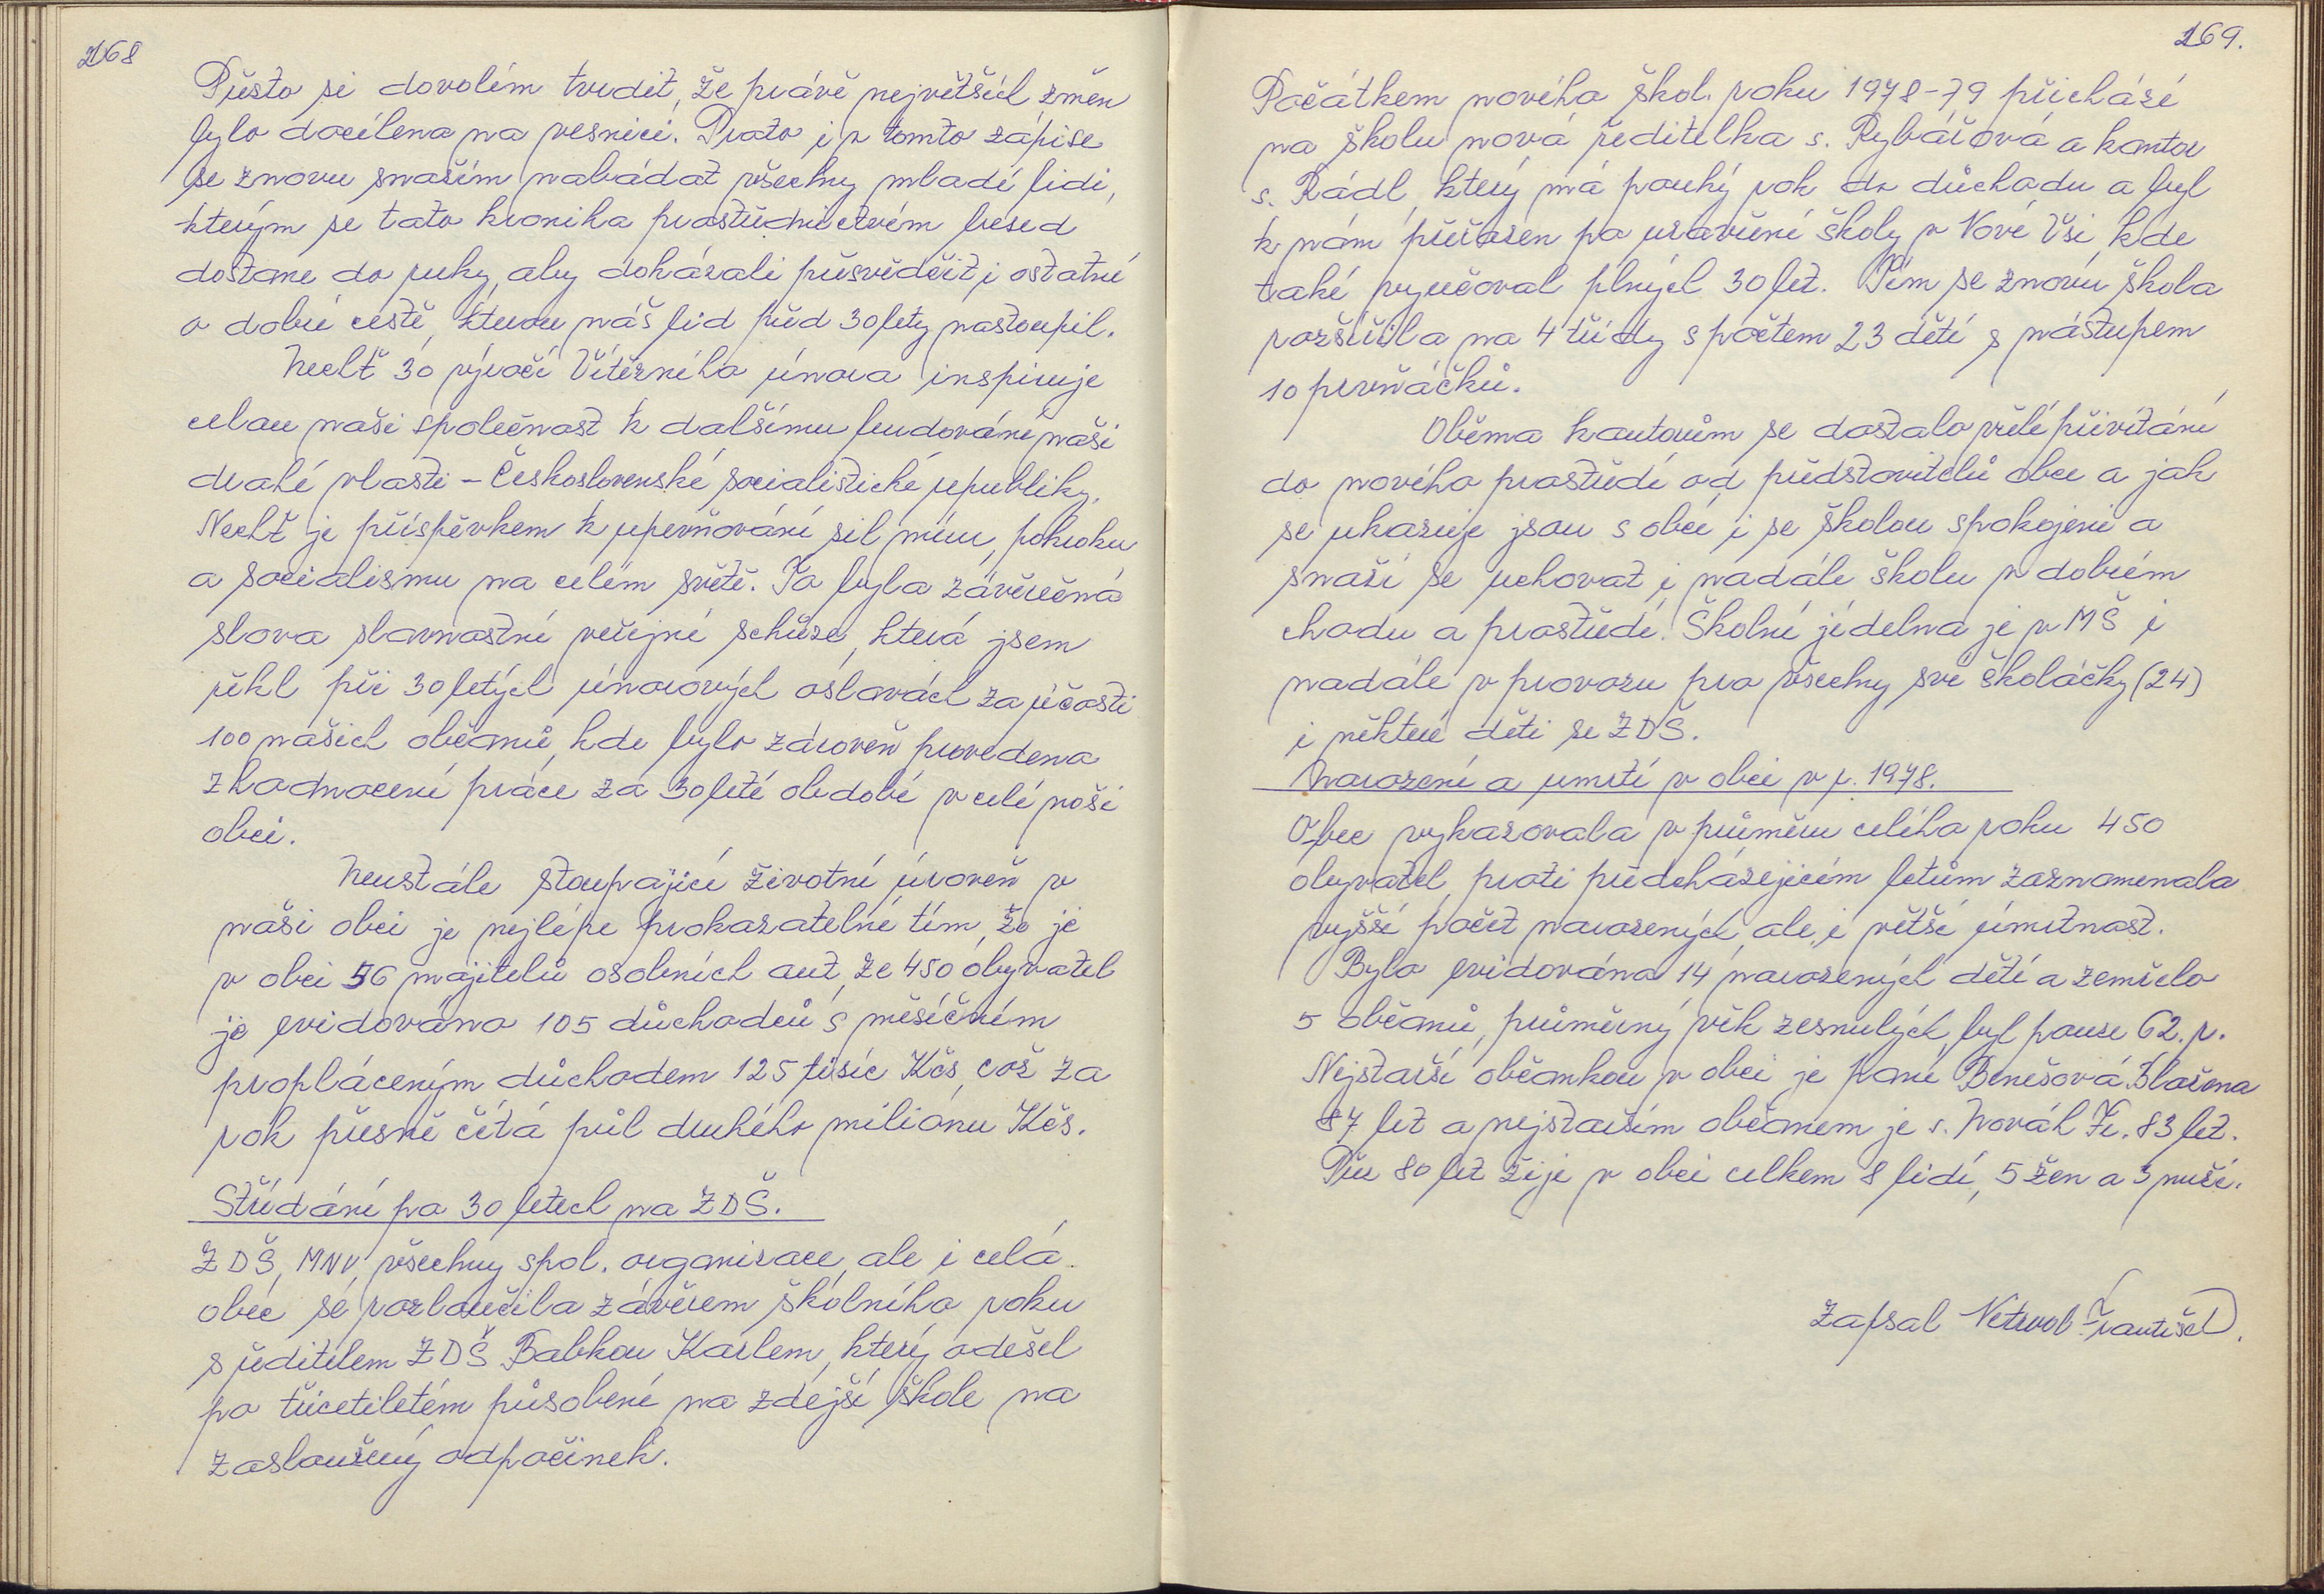 168
Přesto si dovolím tvrdit, že právě největších změn
bylo docíleno na vesnici. Proto i v tomto zápise
se znovu snažím nabádat všechny mladé lidi,
kterým se tato kronika prostřednictvím besed
dostane do ruky, aby dokázali přesvědčit i ostatní
o dobré cestě, kterou náš lid před 30 lety nastoupil.
Nechť 30 výročí Vítězného února inspiruje
celou naši společnost k dalšímu budování naší
drahé vlasti - Československé socialistické republiky.
Nechť je příspěvkem k upevňování sil míru, pokroku
a socialismu na celém světě. To byla závěrečná
slova slavnostní veřejné schůze, která jsem
řekl při 30 letých únorových oslavách za účasti
100 našich občanů, kde bylo zároveň provedeno
zhodnocení práce za 30 leté období v celé naší
obci.
Neustále stoupající životní úroveň v
naší obci je nejlépe prokazatelné tím, že je
v obci 56 majitelů osobních aut, ze 450 obyvatel
je evidováno 105 důchodců s měsíčním
propláceným důchodem 125 tisíc Kčs, což za
rok přesně čítá půl druhého miliónu Kčs.
Střídání po 30 letech na ZDŠ.
ZDŠ, MNV, všechny spol. organizace, ale i celá
obec se rozloučila závěrem školního roku
s ředitelem ZDŠ Babkou Karlem, který odešel
po třicetiletém působení na zdejší škole na
zasloužený odpočinek.
169.
Počátkem nového škol. roku 1978-79 přichází
na školu nová ředitelka s. Rybářová a kantor
s. Rádl, který má pouhý rok do důchodu a byl
k nám přiřazen po uzavření školy v Nové Vsi, kde
také vyučoval plných 30 let. Tím se znovu škola
rozšířila na 4 třídy s počtem 23 dětí s nástupem
10 prvňáčků.
Oběma kantorům se dostalo vřelé přivítání
do nového prostředí od představitelů obce a jak
se ukazuje jsou s obcí i se školou spokojeni a
snaží se uchovat i nadále školu v dobrém
chodu a prostředí. Školní jídelna je v MŠ i
nadále v provozu pro všechny své školáčky (24)
i některé děti ze ZDŠ.
Narození a umrtí v obci v r. 1978.
Obec vykazovala v průměru celého roku 450
obyvatel, proti předcházejícím letům zaznamenala
vyšší počet narozených, ale i větší úmrtnost.
Bylo evidováno 14 narozených dětí a zemřelo
5 občanů, průměrný věk zesnulých byl pouze 62. r.
Nejstarší občankou v obci je paní Benešová Blažena
87 let a nejstarším občanem je s. Novák Fr. 83 let.
Přes 80 let žije v obci celkem 8 lidí, 5 žen a 3 muži.
Zapsal Netrval František.